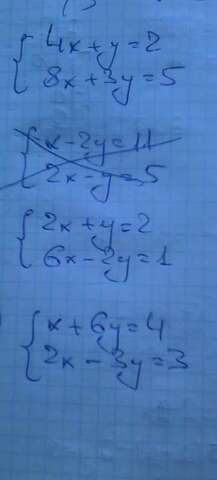 4x+y=2
8x+3y=5
x-2y=11
2x-y=5
2x+y=2
6x-2y=1
x+6y=4
2x-3y=3